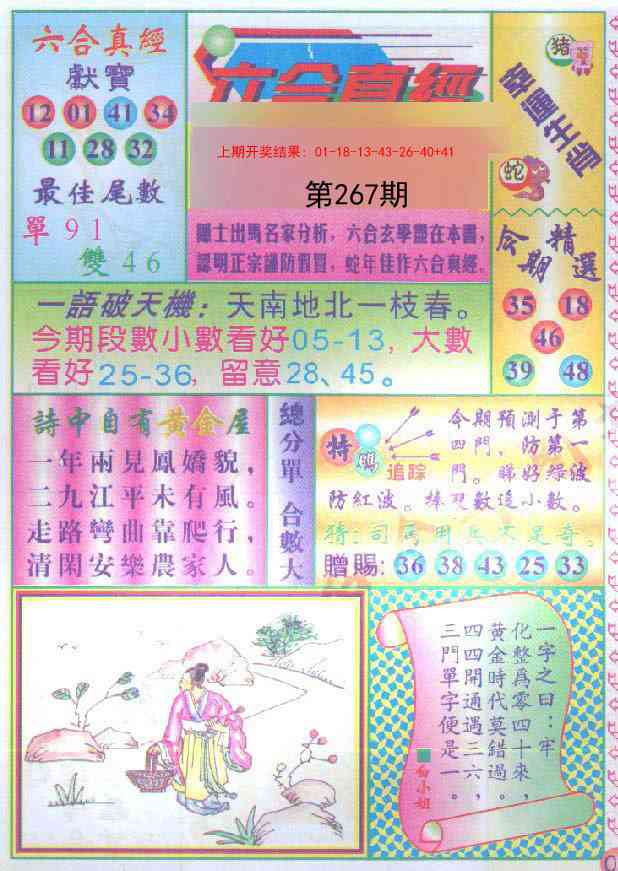 六合真經
獻寶
12 01 41 34
11 28 32
最佳尾數
單91
雙46
六合真經
上期开奖结果：01-18-13-43-26-40+41
第267期
圖士出馬名家分析，六合玄學盡在本書，
認明正宗謹防假冒，蛇年佳作六合真經。
猪
蛇
今期
精選
35 18
46
39 48
一語破天機：天南地北一枝春。
今期段數小數看好05-13，大數
看好25-36，留意28、45。
詩中自有黃金屋
一年兩見鳳嬌貌，
二九江平未有風。
走路彎曲靠爬行，
清閑安樂農家人。
總分單 合數大
特
碼
追踪
今期預測于第
四門，防第一
門。睇好綠波
防紅波。捧双數追小數。
猜：司馬用兵不足奇。
贈賜：36 38 43 25 33
一字之曰：牢
化整爲零四十來，
黃金時代莫錯過。
四四開通遇三六，
三門單字便是一。
白小姐